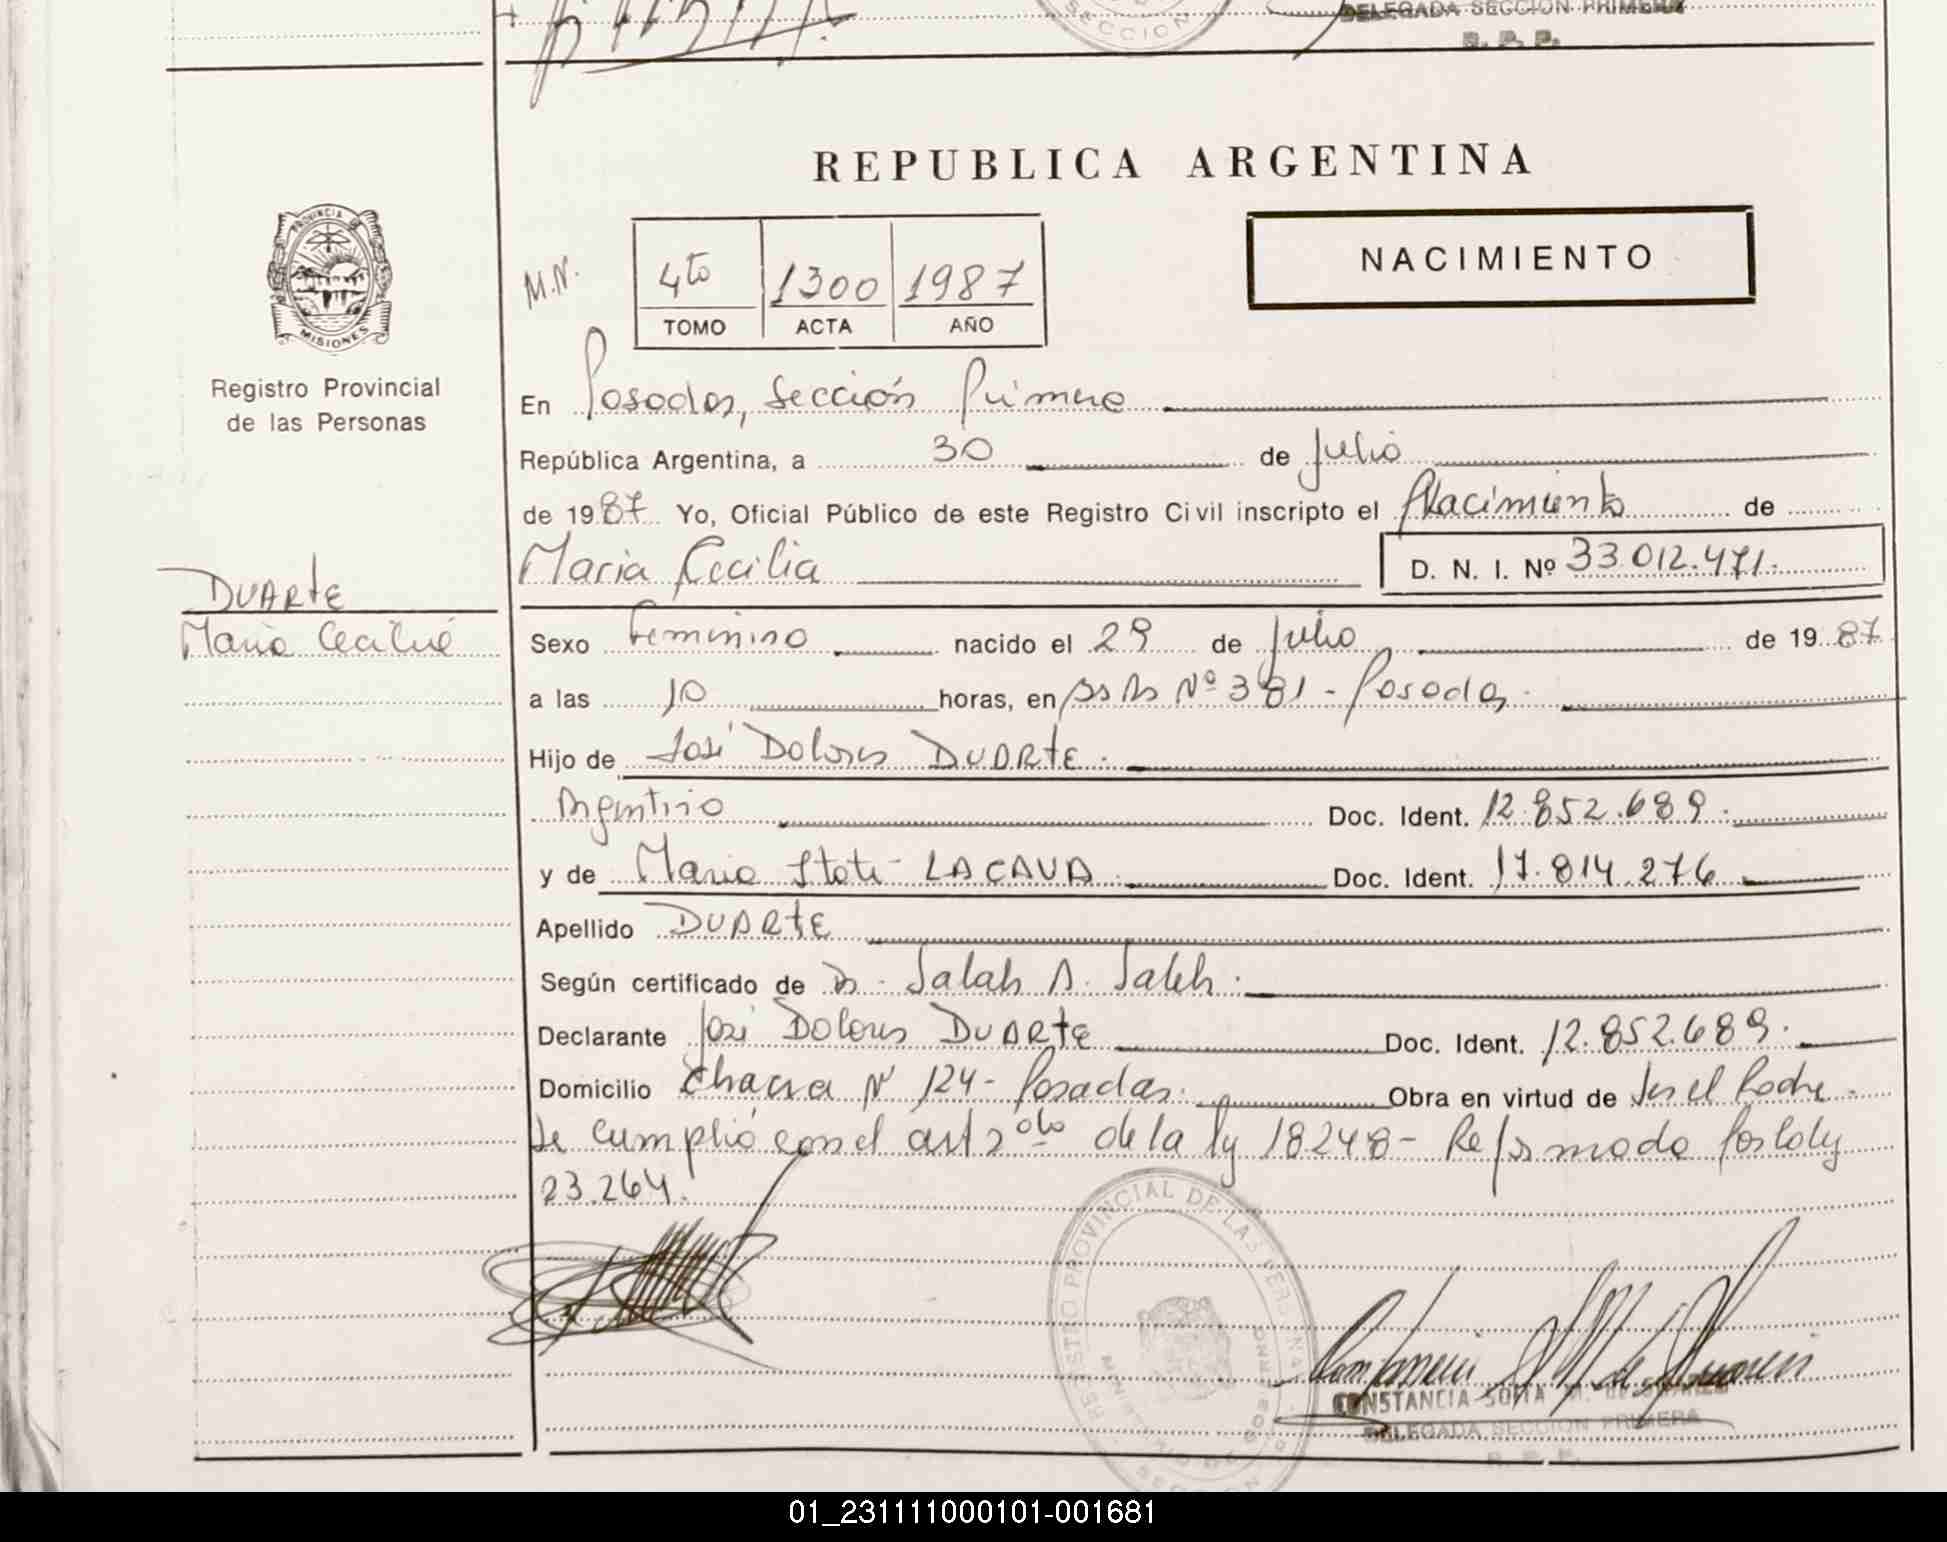 DELEGADA SECCION PRIMERA
R. P. P.
SECCION
REPUBLICA ARGENTINA
PROVINCIA DE
MISIONES
Registro Provincial
de las Personas
M.N.
4to 1300 1987
TOMO ACTA AÑO
NACIMIENTO
En Posadas, Sección Primera
República Argentina, a 30 de Julio
de 1987 Yo, Oficial Público de este Registro Civil inscripto el Nacimiento de
Maria Cecilia D. N. I. Nº 33.012.471.
DUARTE
Maria Cecilia
Sexo Femenino nacido el 29 de Julio de 1987
a las 10 horas, en Nº 381 - Posadas.
Hijo de José Dolores DUARTE.
Argentino Doc. Ident. 12.852.689.
y de Maria LACAVA. Doc. Ident. 17.814.276
Apellido DUARTE
Según certificado de Dr. Salah A. Saleh.
Declarante José Dolores DUARTE Doc. Ident. 12.852.689.
Domicilio Chacra Nº 124 - Posadas. Obra en virtud de Ser el Padre.
Se cumplió con el art 2do de la ley 18248 - Reformado por la ley
23.264.
REGISTRO PROVINCIAL DE LAS PERSONAS
MINISTERIO DE GOBIERNO
SECCION
CONSTANCIA SOFIA M. DE SUAREZ
DELEGADA SECCION PRIMERA
R. P. P.
01_231111000101-001681